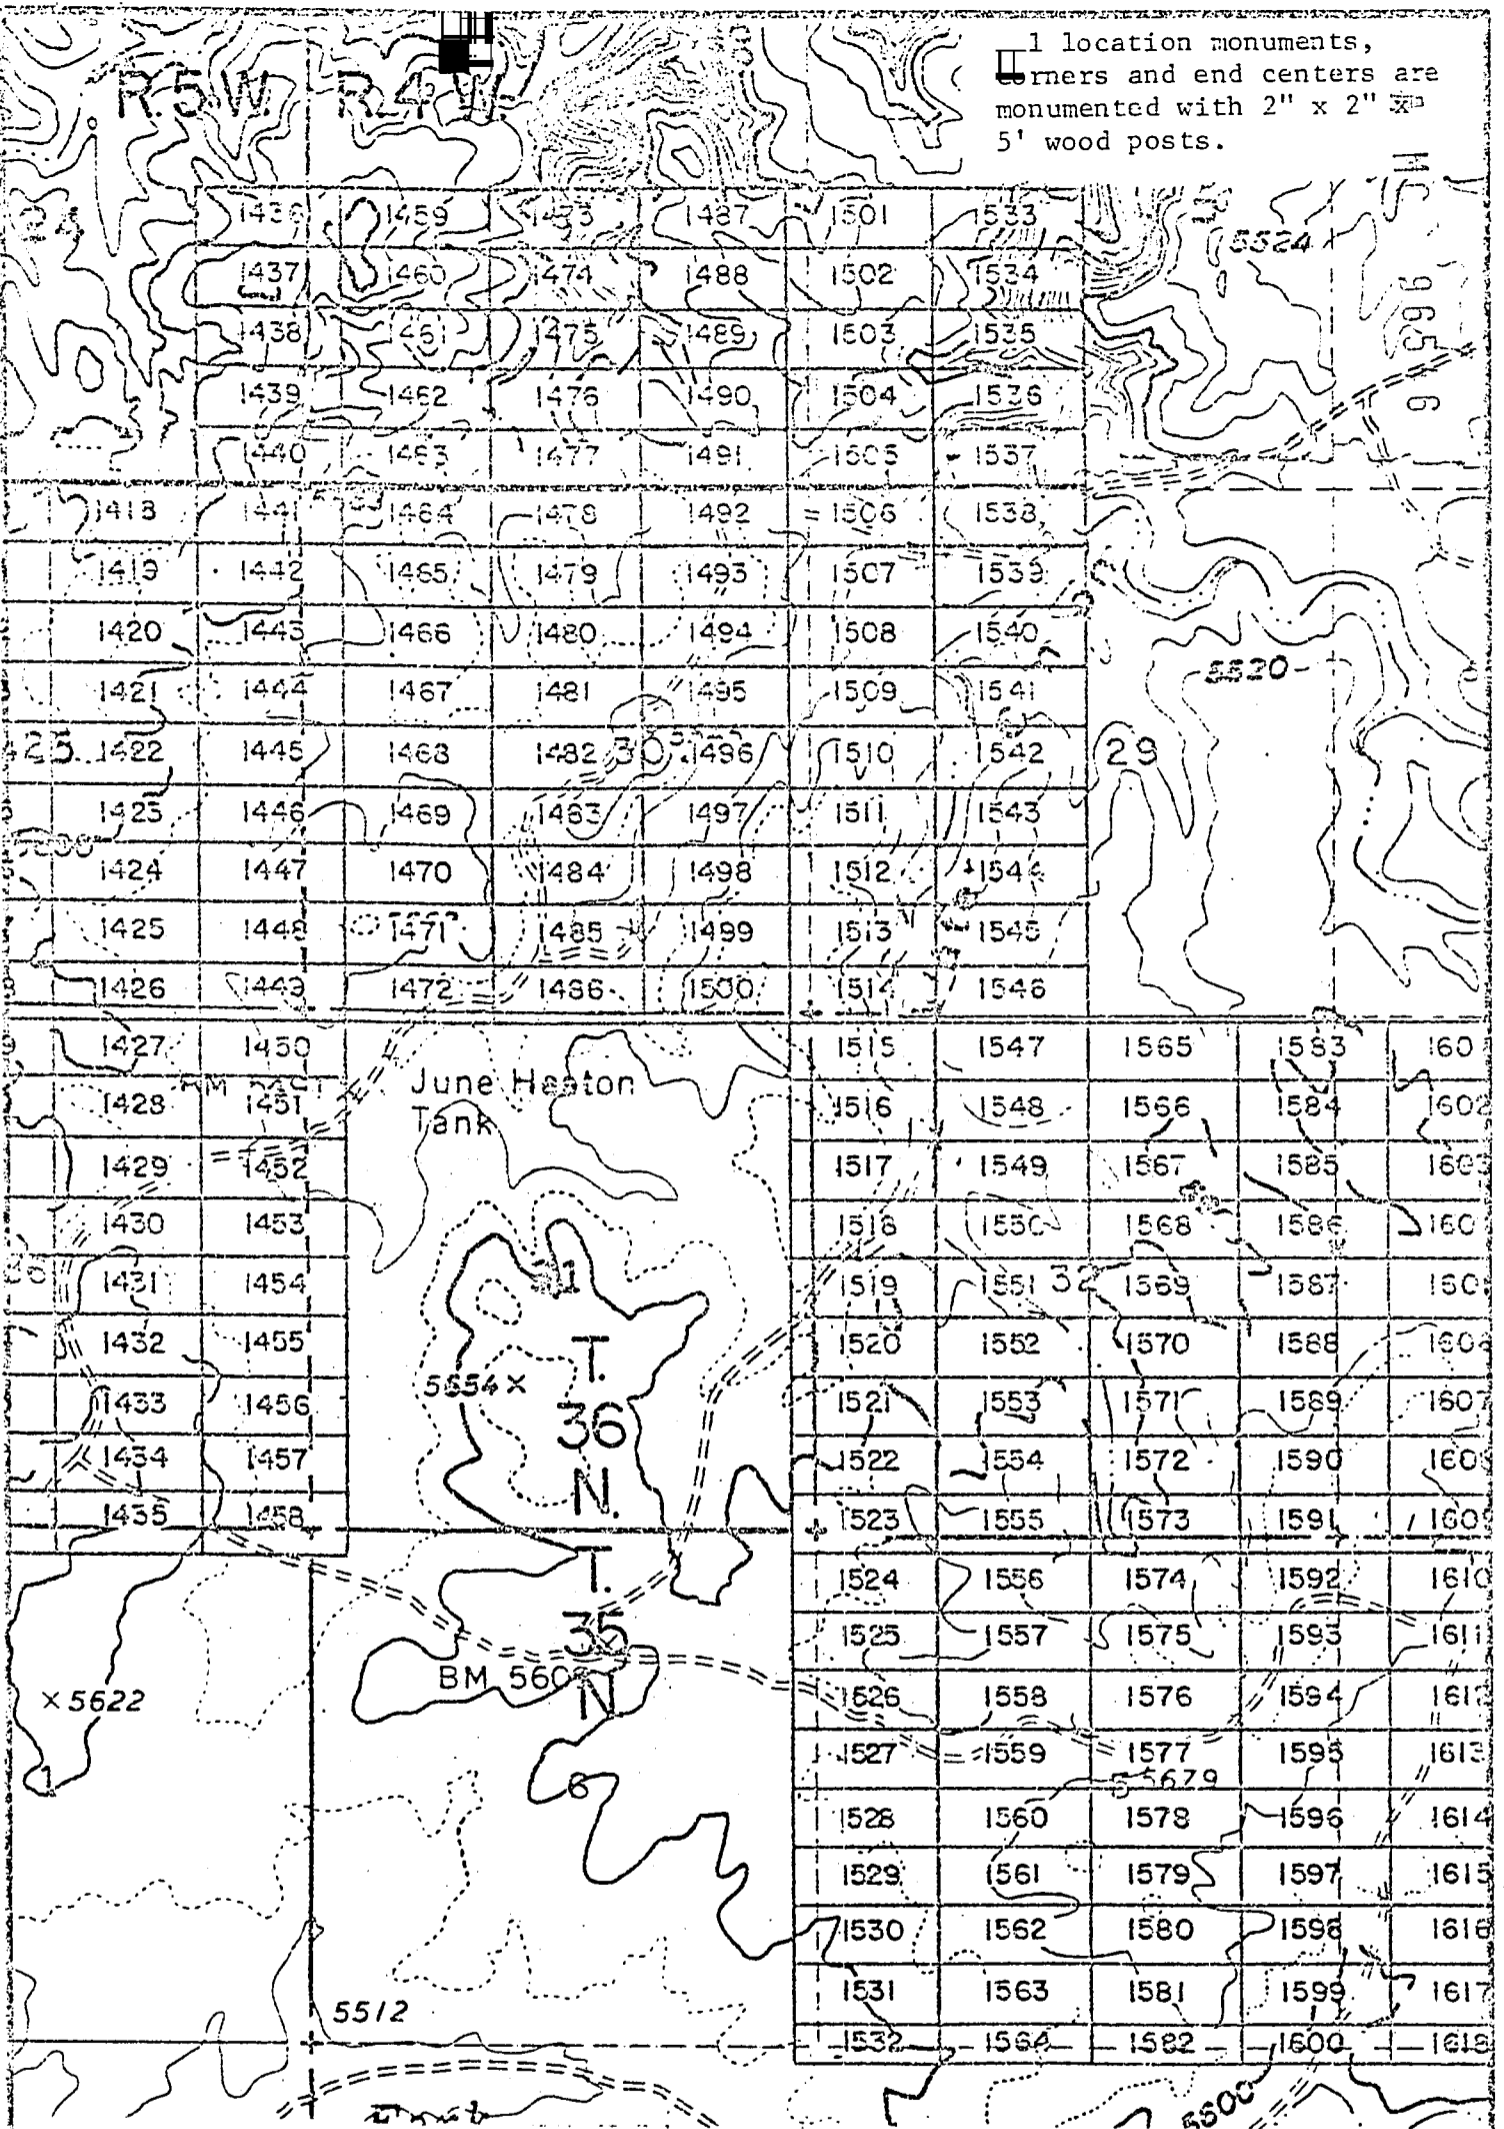 1 location monuments,
corners and end centers are
monumented with 2" x 2" x
5' wood posts.
R.5W. R.4W.
24
5524
1436 1459 1473 1487 1501 1533
1437 1460 1474 1488 1502 1534
1438 1461 1475 1489 1503 1535
1439 1462 1476 1490 1504 1536
1440 1463 1477 1491 1505 1537
1418 1441 1464 1478 1492 1506 1538
1419 1442 1465 1479 1493 1507 1539
1420 1443 1466 1480 1494 1508 1540
5520
1421 1444 1467 1481 1495 1509 1541
25 1422 1445 1468 1482 30 1496 1510 1542 29
1423 1446 1469 1483 1497 1511 1543
1424 1447 1470 1484 1498 1512 1544
1425 1448 1471 1485 1499 1513 1545
1426 1449 1472 1486 1500 1514 1546
1427 1450 1515 1547 1565 1583 160
June Heaton
Tank
1428 1451 1516 1548 1566 1584 1602
1429 1452 1517 1549 1567 1585 1603
1430 1453 1518 1550 1568 1586 160
1431 1454 31 1519 1551 32 1569 1587 160
1432 1455 1520 1552 1570 1588 160
T.
36
N.
5654 ×
1433 1456 1521 1553 1571 1589 1607
1434 1457 1522 1554 1572 1590 160
1435 1458 1523 1555 1573 1591 1609
T.
35
N
1524 1556 1574 1592 1610
1525 1557 1575 1593 1611
BM 560
× 5622
1526 1558 1576 1594 1612
1527 1559 1577 1595 1613
5679
6
1
1528 1560 1578 1596 1614
1529 1561 1579 1597 1615
1530 1562 1580 1598 1616
1531 1563 1581 1599 1617
5512
1532 1564 1582 1600 1618
5500